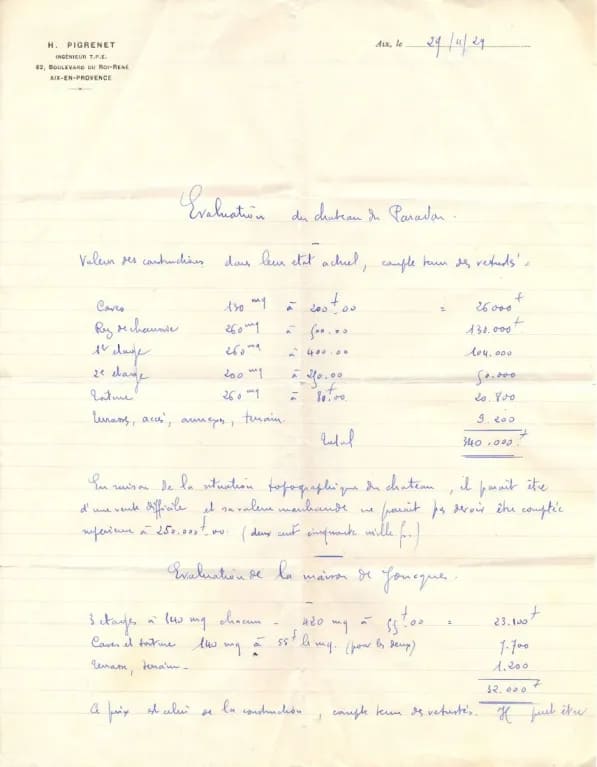 H. PIGRENET
INGÉNIEUR T.P.E.
62, BOULEVARD DU ROI-RENÉ
AIX-EN-PROVENCE
Aix, le 29/11/29
Evaluation du chateau du Paradou.
Valeur des constructions dans leur état actuel, compte tenu des vetustés.
Caves 130 mq à 200f.00 = 26000f
Rez de chaussée 260 mq à 500.00 130.000f
1er étage 260 mq à 400.00 104.000
2e étage 200 mq à 250.00 50.000
Toiture 260 mq à 80f.00 20.800
terrasse, accès, annexes, terrain. 9.200
Total 340.000f
En raison de la situation topographique du chateau, il parait être
d'une vente difficile et sa valeur marchande ne parait pas devoir être comptée
supérieure à 250.000f.00 (deux cent cinquante mille fr.)
Evaluation de la maison de Jouques.
3 étages à 140 mq chacun - 420 mq à 55f.00 = 23.100f
Caves et toiture 140 mq à 55f le mq. (pour les deux) 7.700
terrasse, terrain - 1.200
32.000f
Ce prix est celui de la construction, compte tenu des vetustés. Il peut être